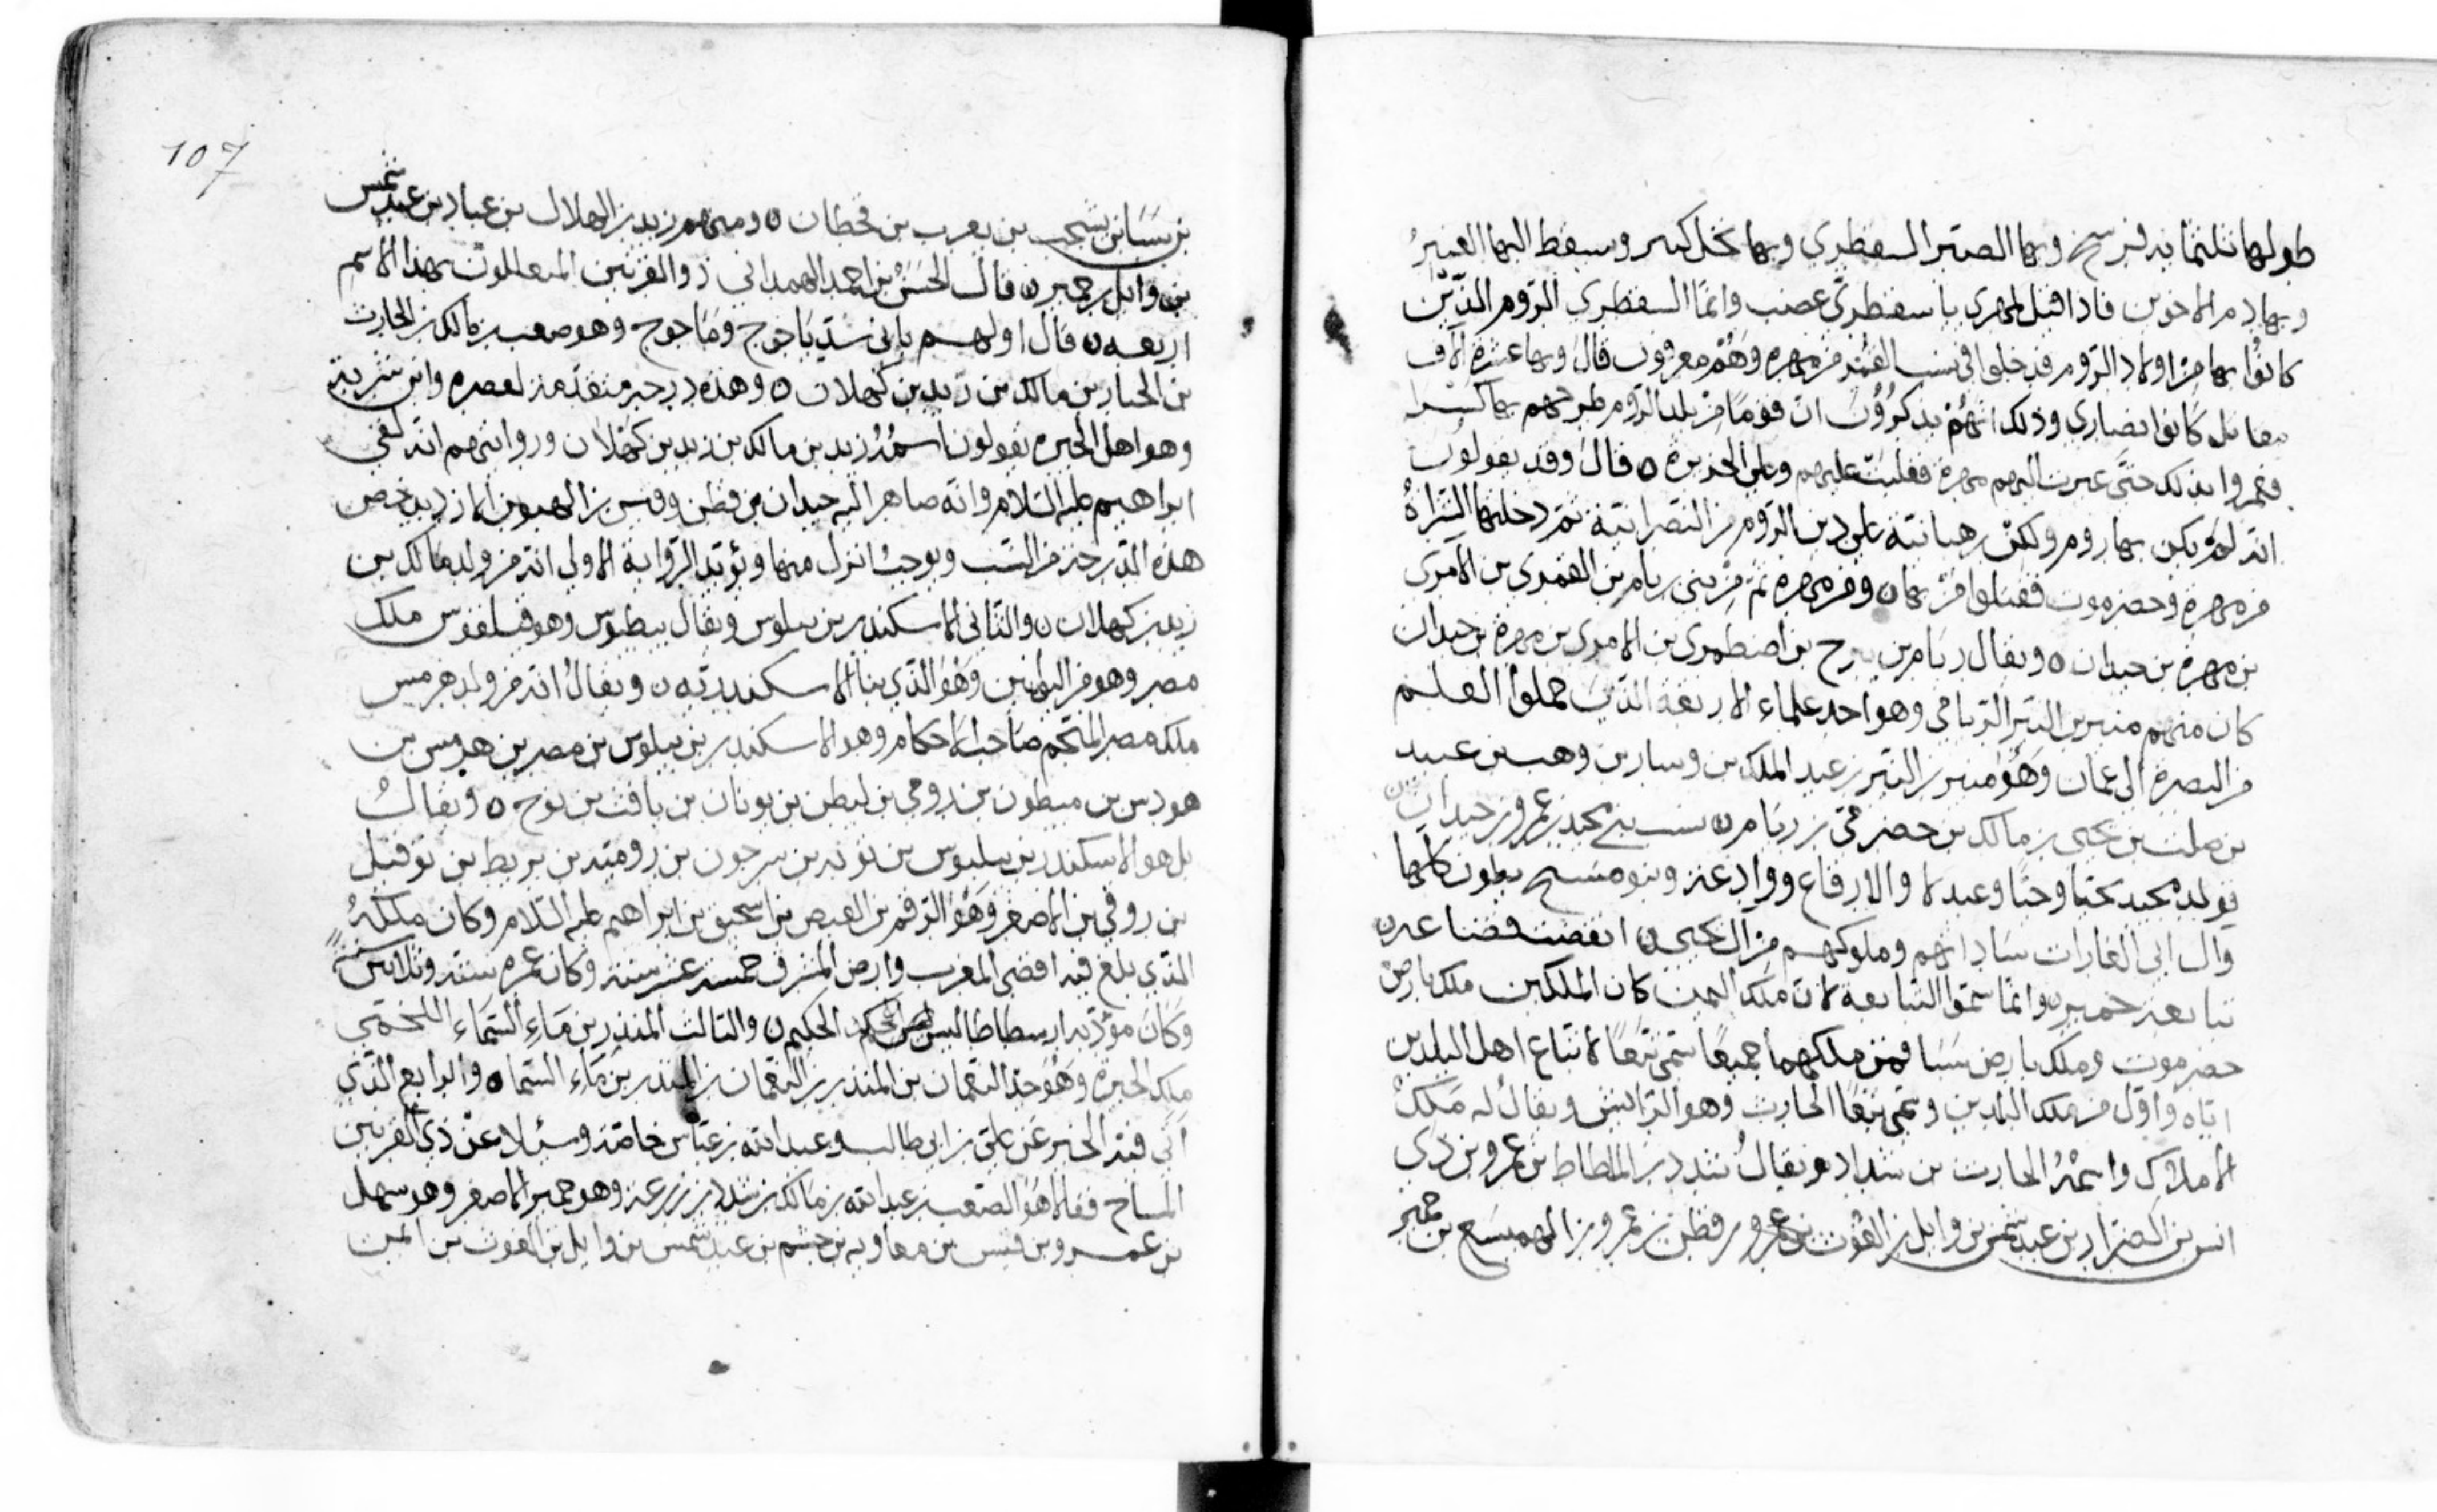 طولها ثلثمايه فرسخ وبها الصبر السقطري وبها نخل كثير ويسقط اليها العنبر
وبها دم الاخوين فاذا قيل لمهري يا سقطري غضب وانما السقطري الروم الذين
كانوا بها من اولاد الروم قد دخلوا في نسب القمر من مهرة وهم معروفون قال وبها عشرة الاف
مقاتل كانوا نصارى وذلك انهم يذكرون ان قوما من بلد الروم طرحهم بها كسرا
فعمروا بذلك حتى عبرت اليهم مهرة فغلبت عليهم وعلى الجزيرة ه قال وقد يقولون
انه لم يكن بها روم ولكن رهبانية على دين الروم من النصرانية ثم دخلها الشراة
من مهرة وحضرموت فقتلوا من بها ه ومن مهرة ثم من بني ريام بن القمري بن الامري
بن مهرة بن حيدان ه ويقال ريام بن يبرح بن اضطمري بن الامري بن مهرة بن حيدان
كان منهم منير بن النير الريامي وهو احد علماء الاربعة الذين حملوا العلم
من البصرة الى عمان وهو منير بن النير بن عبد الملك بن وسار بن وهب بن عبيد
بن صلت بن يحيى بن مالك بن حضرمي بن ريام ه نسب بني مجيد بن عمرو بن حيدان
فولد مجيد وحيا وعبد لا والارقاع ووادعة وبنو مسيح بطون كلها
وال ابي الغارات ساداتهم وملوكهم من ال يحيى ه انقضت قضاعة ه
تبابعة حمير وانما سموا التبابعة لان ملك اليمن كان الملكين ملك بارض
حضرموت وملك بارض سبا فمن ملكهما جميعا سمى تبعا لاتباع اهل البلدين
اياه واول من ملك البلدين وسمى تبعا الحارث وهو الرايش ويقال له ملك
الاملاك واسمه الحارث بن شداد ويقال شدد بن الملطاط بن عمرو بن ذي
انس بن الصوار بن عبد شمس بن وايل بن الغوث بن عمرو بن قطن بن عمرو بن الهميسع بن حمير
107
بن سبا بن يشجب بن يعرب بن قحطان ه ومنهم زيد بن الهلال بن عباد بن عبد شمس
بن وايل بن حمير ه قال الحسن بن احمد الهمداني ذو القرنين المتعللون بهذا الاسم
اربعة ه قال اولهم باني سد ياجوج وماجوج وهو صعب بن مالك بن الحارث
بن الحيار بن مالك بن زيد بن كهلان ه وهذه درجة متقدمة لعصره وابن شرية
وهو اهل الحيرة يقولون اسمه زيد بن مالك بن زيد بن كهلان وروايتهم انه لقي
ابراهيم عليه السلام وانه صاهر اليه حيدان بن قطن وقيس بن الهبوب الازدي
هذه الدرجة من النسب ويوجب انزل منها ويؤيد الرواية الاولى انه من ولد مالك بن
زيد بن كهلان ه والثاني الاسكندر بن بيلوس ويقال بيطوس وهو فيلفوس ملك
مصر وهو من اليونانيين وهو الذي بنا الاسكندرية ه ويقال انه من ولد هرمس
ملك مصر المنجم صاحب الاحكام وهو الاسكندر بن بيلوس بن مصر بن هرمس بن
هودس بن ميطون بن رومي بن ليطن بن يونان بن يافث بن نوح ه ويقال
بل هو الاسكندر بن بيليوس بن نوبه بن سرجون بن رومية بن بربط بن توفيل
بن روقي بن الاصفر وهو الرقم بن العيص بن اسحق بن ابراهيم عليه السلام وكان ملكه
الذي بلغ فيه اقصى المغرب وارض المشرق خمسة عشر سنة وكان عمره ستة وثلاثين سنة
وكان مؤدبه ارسطاطاليس الحكيم ه والثالث المنذر بن ماء السماء اللخمي
ملك الحيرة وهو جد النعمان بن المنذر بن النعمان بن المنذر بن ماء السماء ه والرابع الذي
اتى فيه الخبر عن علي بن ابي طالب وعبد الله بن عباس خاصة وسئلا عن ذي القرنين
المساح فقالا هو الصعب بن عبد الله بن مالك بن سدد بن زرعة وهو حمير الاصغر وهو سهل
بن عمرو بن قيس بن معاويه بن جشم بن عبد شمس بن وايل بن الغوث بن ايمن